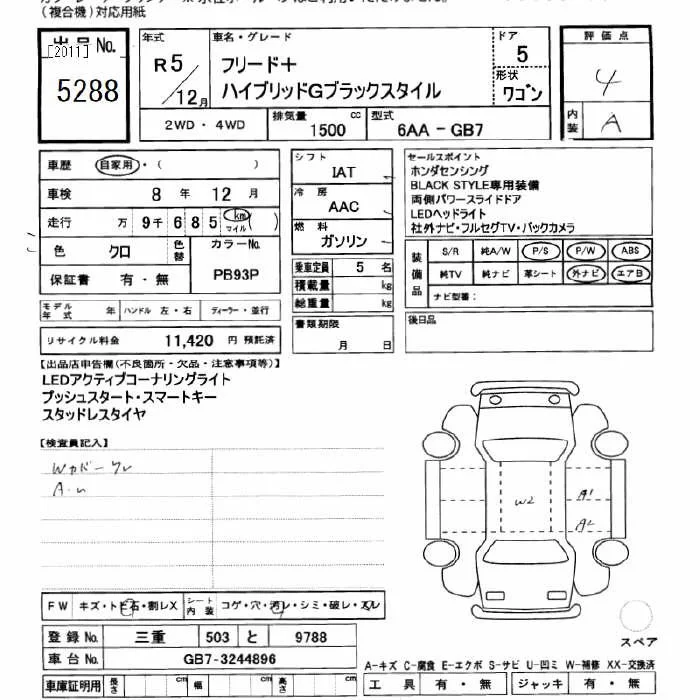 (複合機)対応用紙
出品No.
[2011]
5288
年式
R5/12月
車名・グレード
フリード+
ハイブリッドGブラックスタイル
ドア
5
形状
ワゴン
評価点
4
内装
A
2WD・4WD
排気量
1500 cc
型式
6AA-GB7
車歴 自家用・( )
車検 8年 12月
走行 万 9千 6 8 5 km マイル ( )
色 クロ 色替
カラーNo.
PB93P
保証書 有・無
シフト
IAT
冷房
AAC
燃料
ガソリン
乗車定員 5 名
積載量 kg
総重量 kg
セールスポイント
ホンダセンシング
BLACK STYLE専用装備
両側パワースライドドア
LEDヘッドライト
社外ナビ・フルセグTV・バックカメラ
装備品
S/R 純A/W P/S P/W ABS
純TV 純ナビ 革シート 外ナビ エアB
ナビ型番:
モデル年式 年 ハンドル 左・右 ディーラー・並行
リサイクル料金 11,420 円 預託済
書類期限
月 日
後日品
【出品店申告欄(不良箇所・欠品・注意事項等)】
LEDアクティブコーナリングライト
プッシュスタート・スマートキー
スタッドレスタイヤ
【検査員記入】
W2
A1
A2
FW キズ・トビ石・割レX シート内装 コゲ・穴・汚レ・シミ・破レ・スレ
登録No. 三重 503 と 9788
車台No. GB7-3244896
車庫証明用 長さ cm 幅 cm 高さ cm
スペア
A-キズ C-腐食 E-エクボ S-サビ U-凹ミ W-補修 XX-交換済
工具 有・無 ジャッキ 有・無